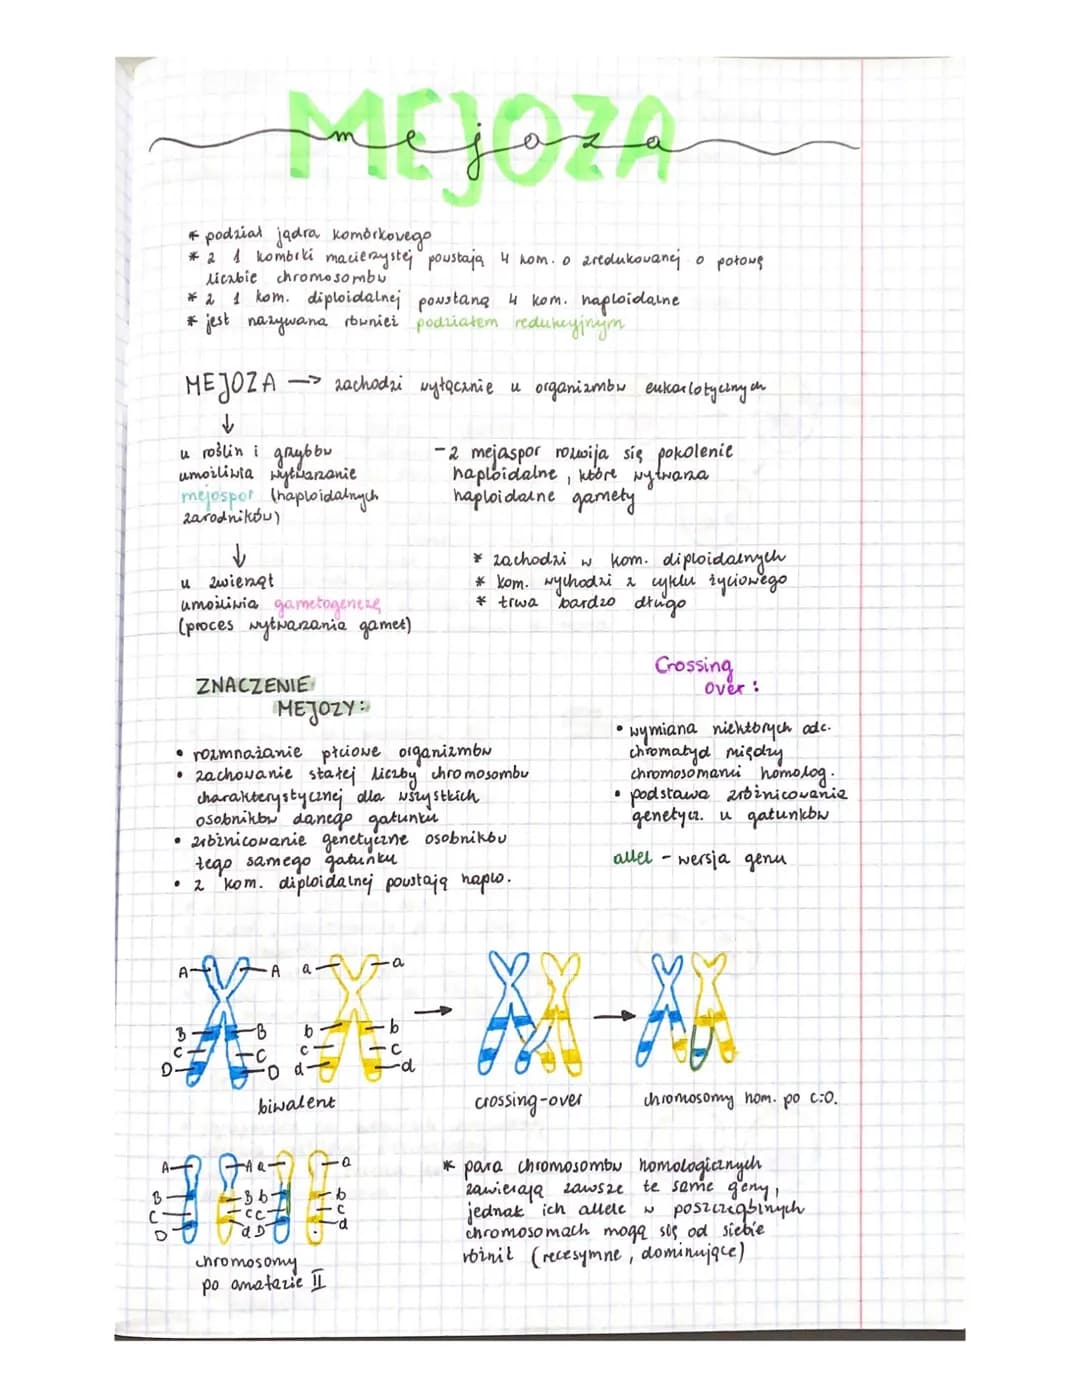 MEJOZA
mejoza
* podział jądra komórkowego
* z 1 komórki macierzystej powstają 4 kom. o zredukowanej o połowę
liczbie chromosomów
* z 1 kom. diploidalnej powstaną 4 kom. haploidalne
* jest nazywana również podziałem redukcyjnym
MEJOZA → zachodzi wyłącznie u organizmów eukariotycznych
↓
u roślin i grzybów
umożliwia wytwarzanie
mejospor (haploidalnych
zarodników)
- z mejaspor rozwija się pokolenie
haploidalne, które wytwarza
haploidalne gamety
↓
u zwierząt
umożliwia gametogenezę
(proces wytwarzania gamet)
* zachodzi w kom. diploidalnych
* kom. wychodzi z cyklu życiowego
* trwa bardzo długo
ZNACZENIE
MEJOZY:
• rozmnażanie płciowe organizmów
• zachowanie stałej liczby chromosomów
charakterystycznej dla wszystkich
osobników danego gatunku
• zróżnicowanie genetyczne osobników
tego samego gatunku
• z kom. diploidalnej powstają haplo.
Crossing
over:
• wymiana niektórych odc.
chromatyd między
chromosomami homolog.
• podstawa zróżnicowania
genetycz. u gatunków
allel - wersja genu
A A a a
B B b b
C C c c
D D d d
biwalent
crossing-over
chromosomy hom. po c:o.
A A a a
B B b b
C c C c
D d D d
chromosomy
po anafazie II
* para chromosomów homologicznych
zawierają zawsze te same geny,
jednak ich allele w poszczególnych
chromosomach mogą się od siebie
różnić (recesymne, dominujące)